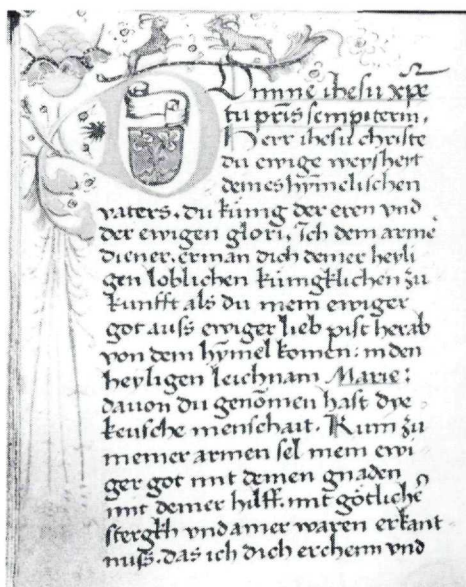 Dmine ihesu xpe
tu pris sempiterni.
Herr ihesu christe
du ewige weyshert
deines hymelischen
vaters. du künig der eren vnd
der ewigen glori. Ich dem arme
diener. erman dich deiner heyli
gen loblichen künigklichen zu
kunfft als du mein ewiger
got auss ewiger lieb pist herab
von dem hymel komen: in den
heyligen leichnam Marie:
dauon du genomen hast dye
keusche menschait. Kum zu
meiner armen sel mein ewi
ger got mit deinen gnaden
mit deiner hilff. mit götliche
stergkh vnd ainer waren erkant
nuss. das ich dich erchenn vnd